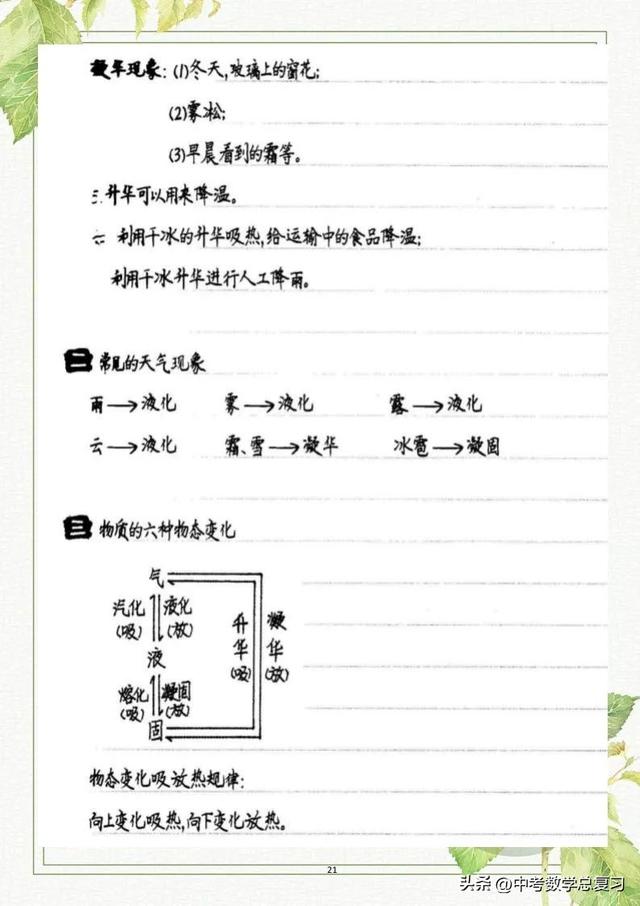 凝华现象：(1)冬天，玻璃上的窗花；
(2)雾凇；
(3)早晨看到的霜等。
三.升华可以用来降温。
利用干冰的升华吸热，给运输中的食品降温；
利用干冰升华进行人工降雨。
二 常见的天气现象
雨→液化 雾→液化 露→液化
云→液化 霜、雪→凝华 冰雹→凝固
三 物质的六种物态变化
气
汽化(吸) 液化(放)
液
熔化(吸) 凝固(放)
固
升华(吸) 凝华(放)
物态变化吸放热规律：
向上变化吸热，向下变化放热。
21
头条 @中考数学总复习